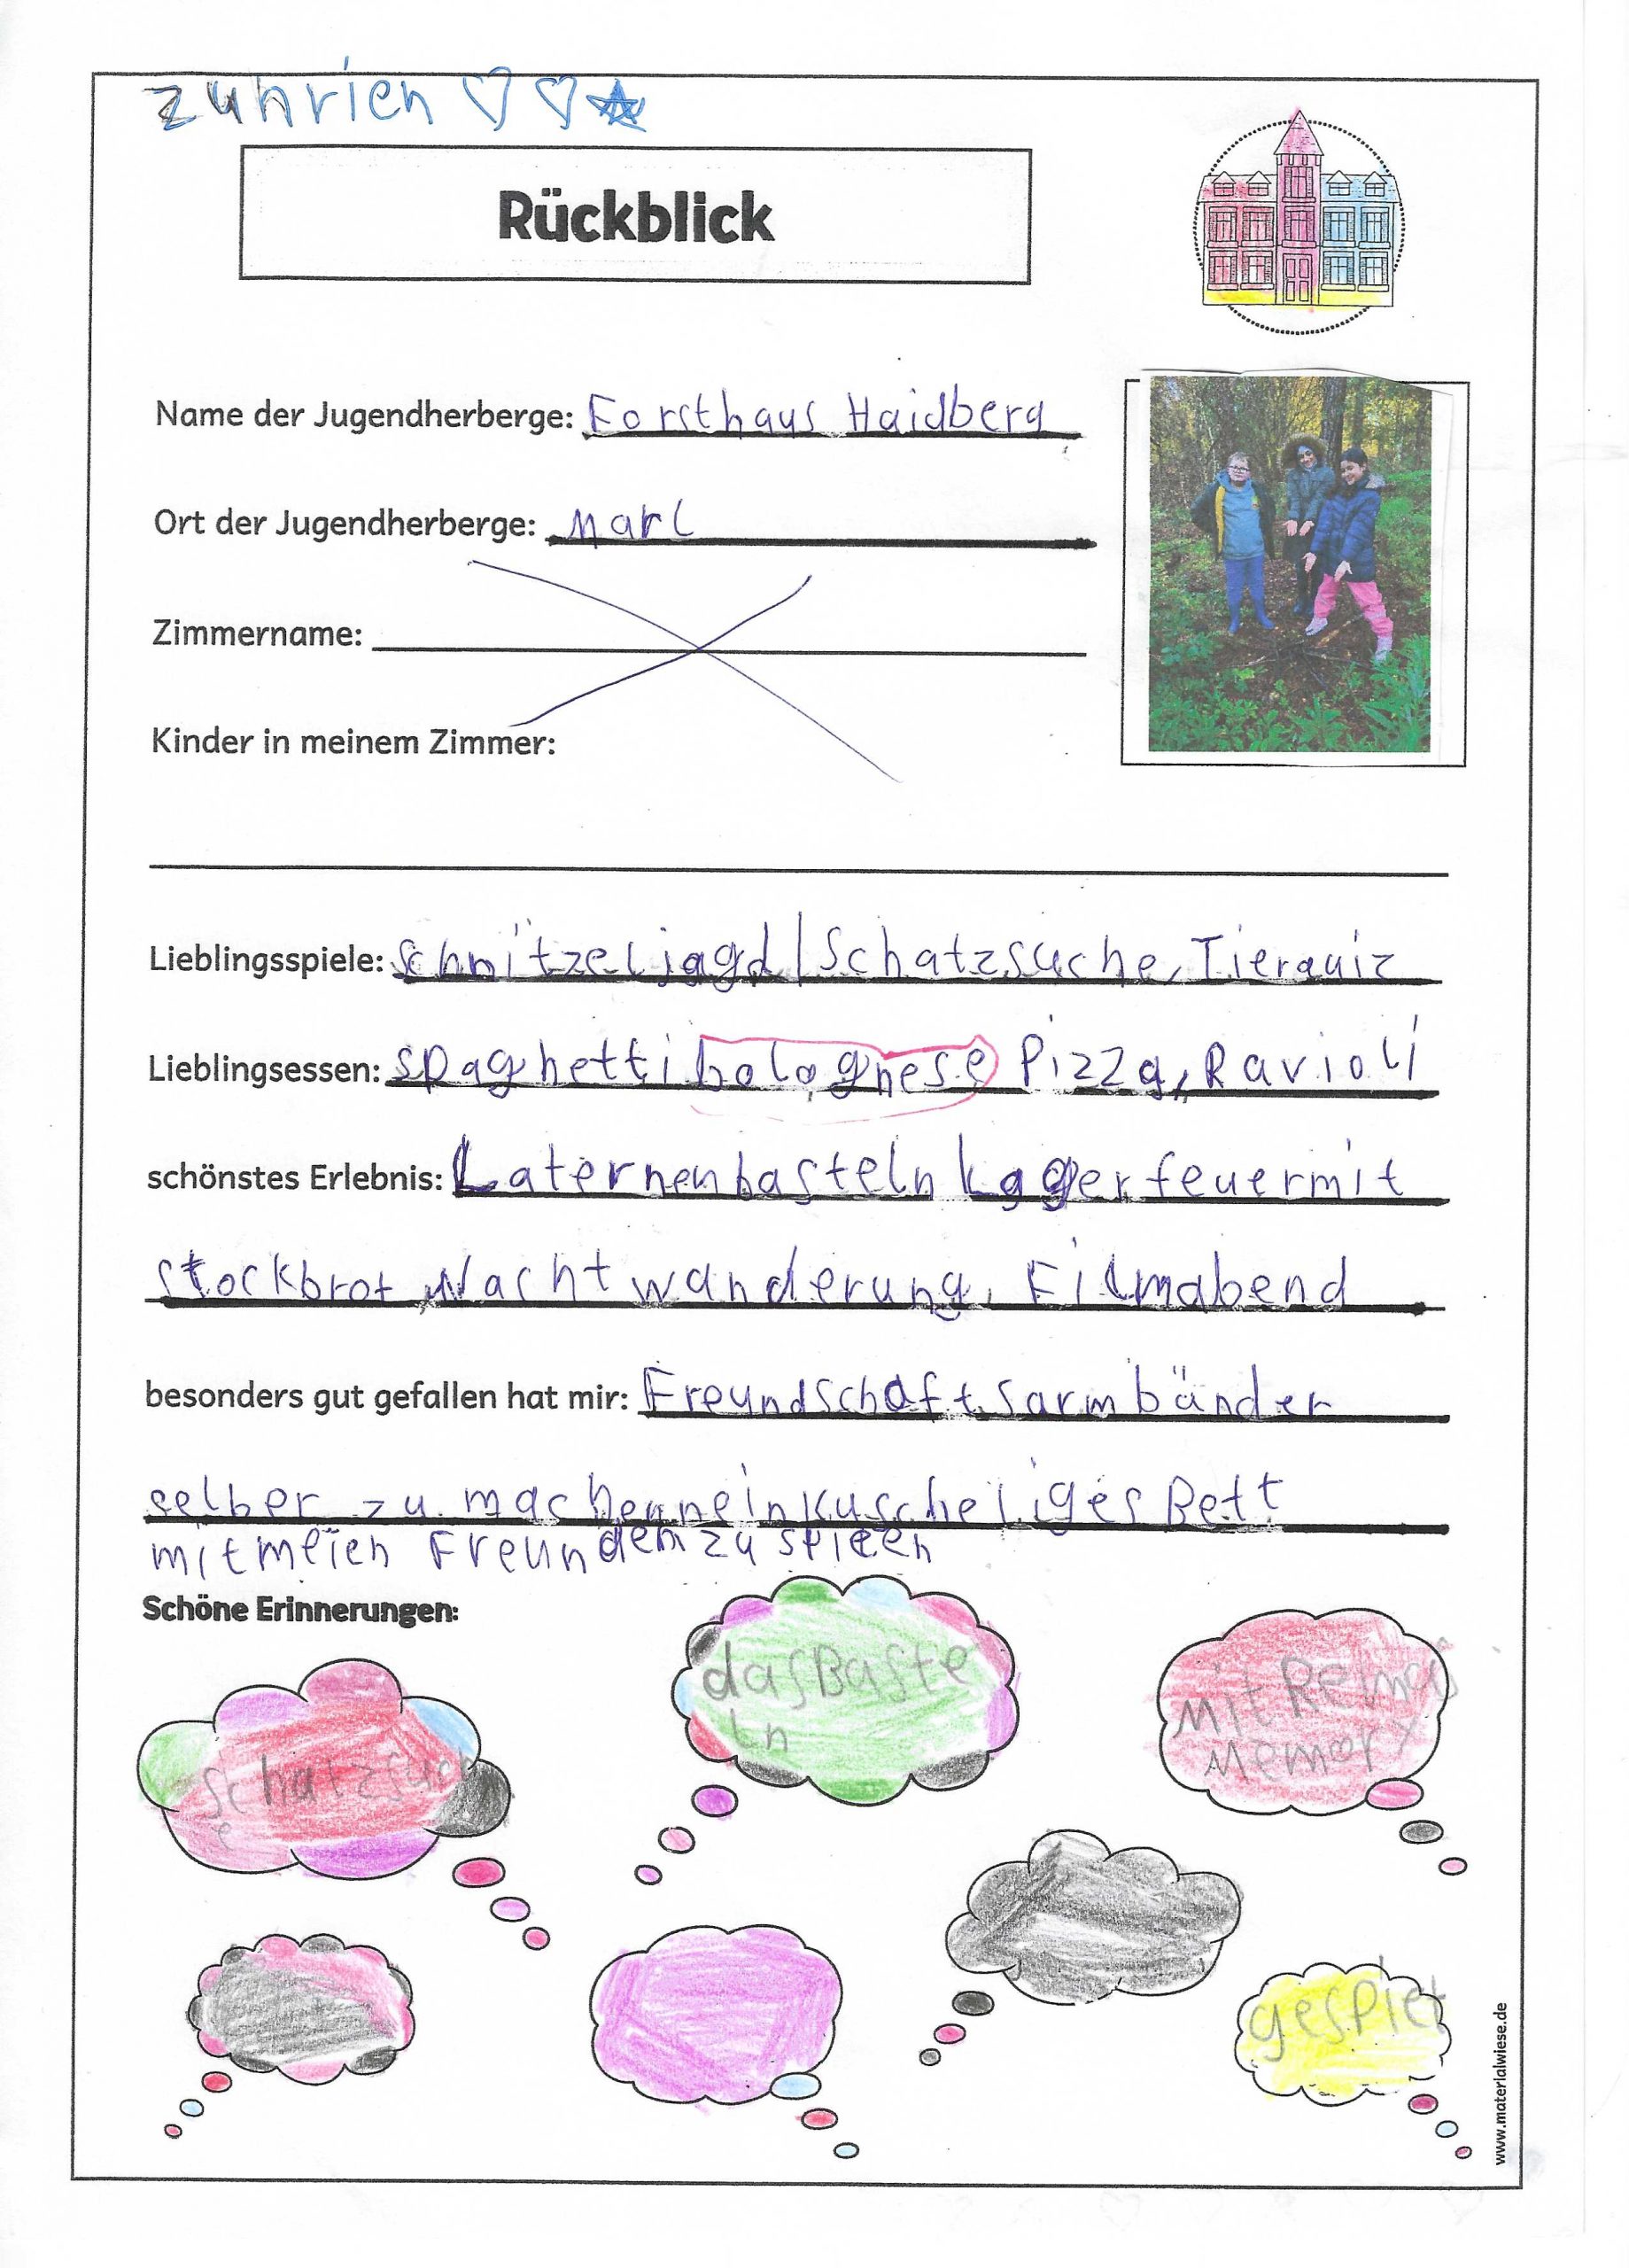 zuhrieh
Rückblick
Name der Jugendherberge: Forsthaus Haidberg
Ort der Jugendherberge: Marl
Zimmername:
Kinder in meinem Zimmer:
Lieblingsspiele: Schnitzeljagd/Schatzsuche, Tierquiz
Lieblingsessen: spaghetti bolognese Pizza, Ravioli
schönstes Erlebnis: Laternenbasteln Lagerfeuermit
stockbrot, Nachtwanderung, Filmabend
besonders gut gefallen hat mir: Freundschaftsarmbänder
selber zu machen ein kuscheliges Bett
mit meien Freunden zu spielen
Schöne Erinnerungen:
das Baste
ln
mit
Memory
Schatzsuch
e
gespielt
www.materialwiese.de